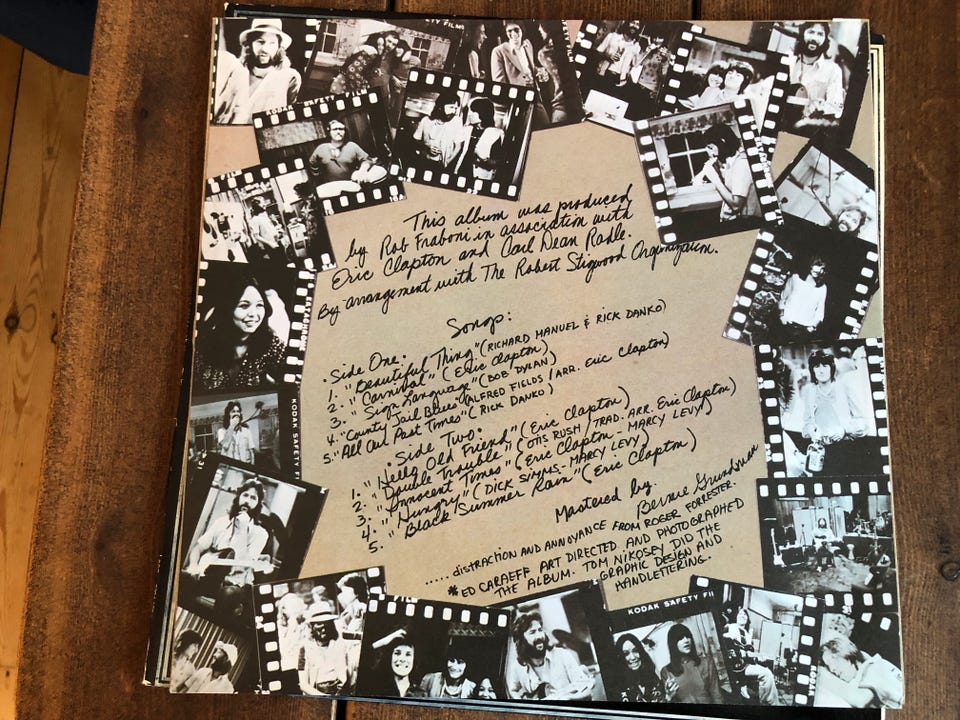 ETY FILM
KODAK SAFETY FILM
This album was produced
by Rob Fraboni in association with
Eric Clapton and Carl Dean Radle.
By arrangement with The Robert Stigwood Organization.
Songs:
• Side One •
1. "Beautiful Thing" (RICHARD MANUEL & RICK DANKO)
2. "Carnival" (Eric Clapton)
3. "Sign Language" (BOB DYLAN)
4. "County Jail Blues" (ALFRED FIELDS / ARR. Eric Clapton)
5. "All Our Past Times" (RICK DANKO)
• Side Two •
1. "Hello Old Friend" (Eric Clapton)
2. "Double Trouble" (OTIS RUSH / TRAD. ARR. Eric Clapton)
3. "Innocent Times" (Eric Clapton - MARCY LEVY)
4. "Hungry" (DICK SIMMS - MARCY LEVY)
5. "Black Summer Rain" (Eric Clapton)
Mastered by:
Bernie Grundman
..... DISTRACTION AND ANNOYANCE FROM ROGER FORRESTER.
* ED CARAEFF ART DIRECTED AND PHOTOGRAPHED
THE ALBUM. TOM NIKOSEY DID THE
GRAPHIC DESIGN AND
HANDLETTERING.
KODAK SAFETY
KODAK SAFETY FI